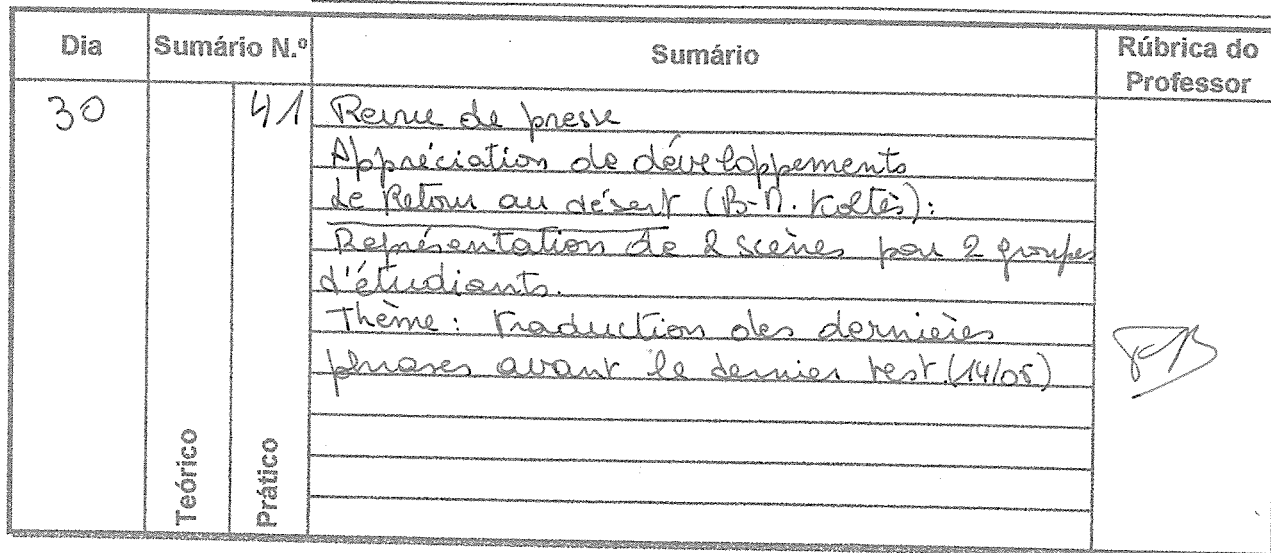 Dia Sumário N.º Sumário Rúbrica do Professor
30 41 Revue de presse
Appréciation de développements
de Retour au désert (B-M. Koltès):
Représentation de 2 scènes par 2 groupes
d'étudiants.
Thème: traduction des dernières
phrases avant le dernier test. (14/05)
Teórico Prático